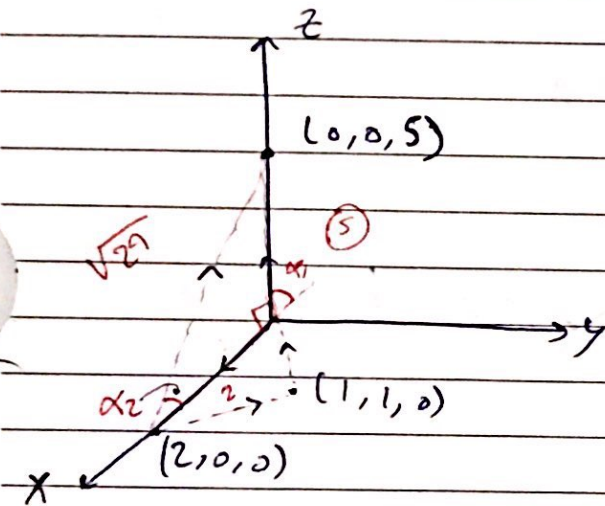 Z
(0,0,5)
5
√29
α1
y
α2
2
(1,1,0)
(2,0,0)
X